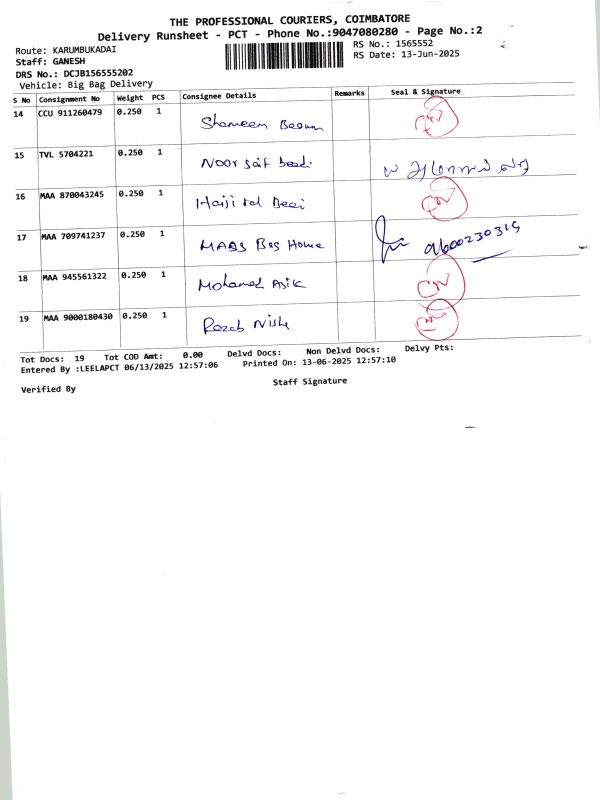 THE PROFESSIONAL COURIERS, COIMBATORE
Delivery Runsheet - PCT - Phone No.:9047080280 - Page No.:2
Route: KARUMBUKADAI
RS No.: 1565552
Staff: GANESH
RS Date: 13-Jun-2025
DRS No.: DCJB156555202
Vehicle: Big Bag Delivery
S No Consignment No Weight PCS Consignee Details Remarks Seal & Signature
14 CCU 911260479 0.250 1 Shameem Begum
15 TVL 5704221 0.250 1 Noor sait
16 MAA 870043245 0.250 1
17 MAA 709741237 0.250 1 MAAS Bags Home 9600230315
18 MAA 945561322 0.250 1 Mohamed Asik
19 MAA 9000180430 0.250 1 Nisha
Tot Docs: 19 Tot COD Amt: 0.00 Delvd Docs: Non Delvd Docs: Delvy Pts:
Entered By :LEELAPCT 06/13/2025 12:57:06 Printed On: 13-06-2025 12:57:10
Verified By Staff Signature